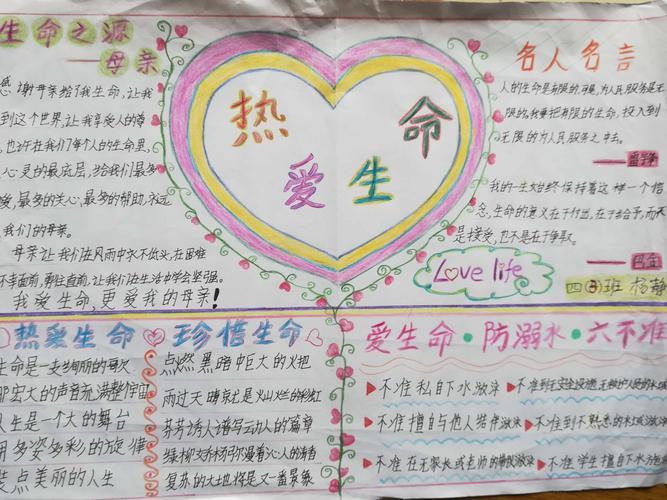 生命之源
——母亲
感谢母亲给了我生命,让我
到这个世界,让我享受人的尊
也许在我们每个人的生命里,
心灵的最底层,给我们最多
爱,最多的关心,最多的帮助,永远
我们的母亲。
母亲,让我们在风雨中永不低头,在困难
面前,勇往直前,让我们在生活中学会坚强。
我爱生命,更爱我的母亲!
热爱生命
Love life
名人名言
人的生命是有限的,可是,为人民服务是无
限的,我要把有限的生命,投入到
无限的为人民服务之中去。
——雷锋
我的一生始终保持着这样一个信
念,生命的意义在于付出,在于给予,而不
是接受,也不是在于争取。
——巴金
四(3)班 杨静
热爱生命
生命是一支绚丽的歌
那宏大的声音充满整个宇宙
人生是一个大的舞台
用多姿多彩的旋律
装点美丽的人生
珍惜生命
点燃黑暗中巨大的火把
雨过天晴京尤是火山烂的彩虹
芬芳诱人谱写动人的篇章
绿柳文乔杨弥漫着沁人的清香
复苏的大地将是又一番景象
爱生命·防溺水·六不准
不准私自下水游泳
不准擅自与他人结伴游泳
不准在无家长或老师的带领游泳
不准到无安全设施、无救护人员的水域
不准到不熟悉的水域游泳
不准学生擅自下水